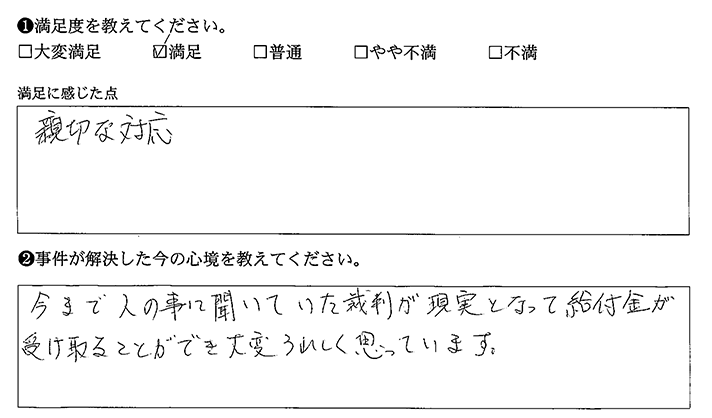 ❶満足度を教えてください。
□大変満足 ☑満足 □普通 □やや不満 □不満
満足に感じた点
親切な対応
❷事件が解決した今の心境を教えてください。
今まで人の事に聞いていた裁判が現実となって給付金が
受け取ることができ大変うれしく思っています。